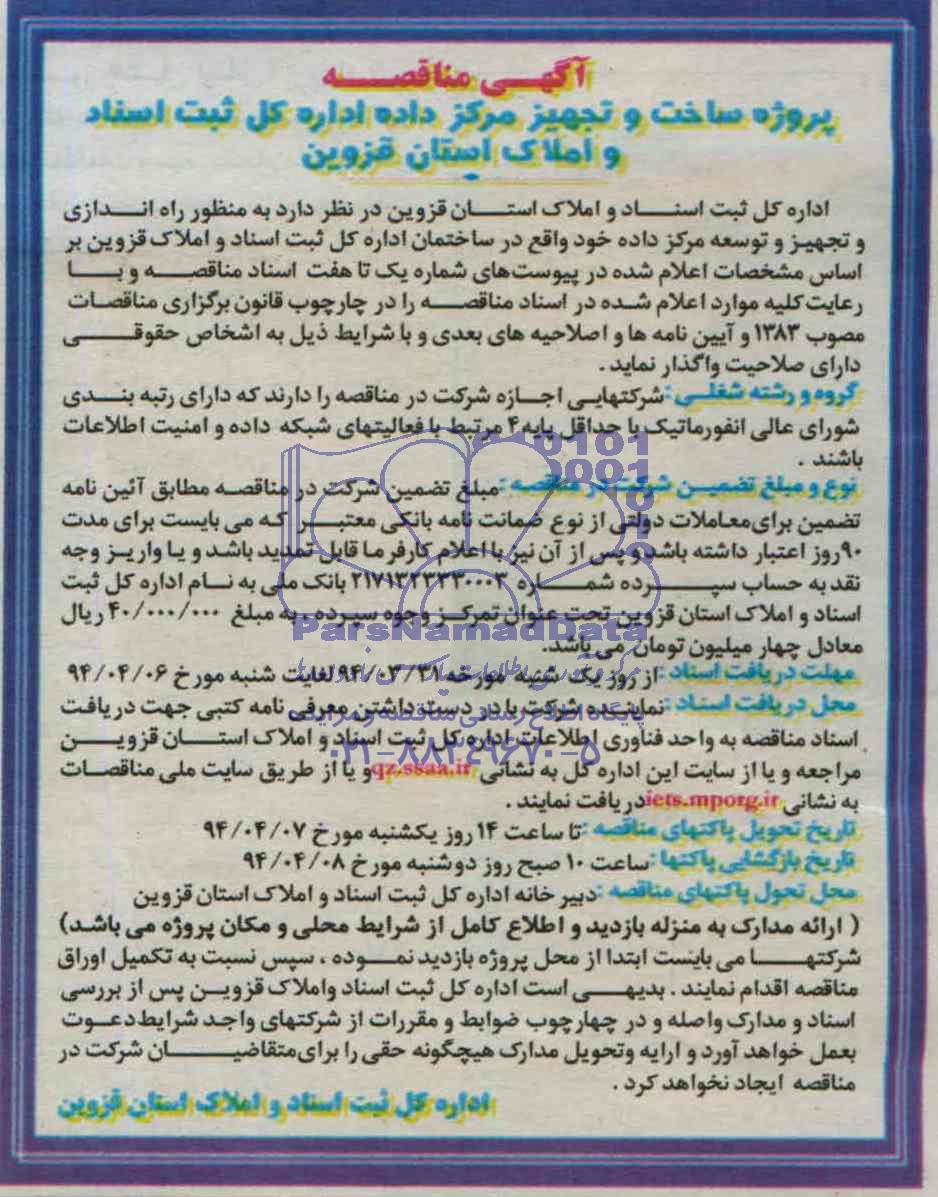 آگهی مناقصه
پروژه ساخت و تجهیز مرکز داده اداره کل ثبت اسناد
و املاک استان قزوین
اداره کل ثبت اسناد و املاک استان قزوین در نظر دارد به منظور راه اندازی
و تجهیز و توسعه مرکز داده خود واقع در ساختمان اداره کل ثبت اسناد و املاک قزوین بر
اساس مشخصات اعلام شده در پیوست‌های شماره یک تا هفت اسناد مناقصه و با
رعایت کلیه موارد اعلام شده در اسناد مناقصه را در چارچوب قانون برگزاری مناقصات
مصوب ۱۳۸۳ و آیین نامه ها و اصلاحیه های بعدی و با شرایط ذیل به اشخاص حقوقی
دارای صلاحیت واگذار نماید .
گروه و رشته شغلی : شرکتهایی اجازه شرکت در مناقصه را دارند که دارای رتبه بندی
شورای عالی انفورماتیک با حداقل پایه ۴ مرتبط با فعالیتهای شبکه داده و امنیت اطلاعات
باشند .
نوع و مبلغ تضمین شرکت در مناقصه : مبلغ تضمین شرکت در مناقصه مطابق آئین نامه
تضمین برای معاملات دولتی از نوع ضمانت نامه بانکی معتبر که می بایست برای مدت
۹۰ روز اعتبار داشته باشد و پس از آن نیز با اعلام کارفرما قابل تمدید باشد و یا واریز وجه
نقد به حساب سپرده شماره ۲۱۷۱۳۲۳۳۳۰۰۰۳ بانک ملی به نام اداره کل ثبت
اسناد و املاک استان قزوین تحت عنوان تمرکز وجوه سپرده ، به مبلغ ۴۰/۰۰۰/۰۰۰ ریال
معادل چهار میلیون تومان می باشد.
ParsNamadData
مهلت دریافت اسناد : از روز یک شنبه مورخه ۹۴/۰۳/۳۱ لغایت شنبه مورخ ۹۴/۰۴/۰۶
محل دریافت اسناد : نماینده شرکت با در دست داشتن معرفی نامه کتبی جهت دریافت
پایگاه اطلاع رسانی مناقصه و مزایده
اسناد مناقصه به واحد فناوری اطلاعات اداره کل ثبت اسناد و املاک استان قزوین
۰۲۱-۸۸۳۴۹۶۷۰-۵
مراجعه و یا از سایت این اداره کل به نشانی qz.ssaa.ir و یا از طریق سایت ملی مناقصات
به نشانی iets.mporg.ir دریافت نمایند .
تاریخ تحویل پاکتهای مناقصه : تا ساعت ۱۴ روز یکشنبه مورخ ۹۴/۰۴/۰۷
تاریخ بازگشایی پاکتها : ساعت ۱۰ صبح روز دوشنبه مورخ ۹۴/۰۴/۰۸
محل تحول پاکتهای مناقصه : دبیر خانه اداره کل ثبت اسناد و املاک استان قزوین
( ارائه مدارک به منزله بازدید و اطلاع کامل از شرایط محلی و مکان پروژه می باشد)
شرکتها می بایست ابتدا از محل پروژه بازدید نموده ، سپس نسبت به تکمیل اوراق
مناقصه اقدام نمایند . بدیهی است اداره کل ثبت اسناد واملاک قزوین پس از بررسی
اسناد و مدارک واصله و در چهارچوب ضوابط و مقررات از شرکتهای واجد شرایط دعوت
بعمل خواهد آورد و ارایه وتحویل مدارک هیچگونه حقی را برای متقاضیان شرکت در
مناقصه ایجاد نخواهد کرد .
اداره کل ثبت اسناد و املاک استان قزوین